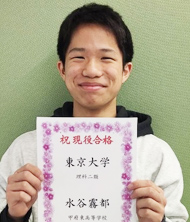 祝現役合格
東京大学
理科二類
水谷霧都
甲府東高等学校